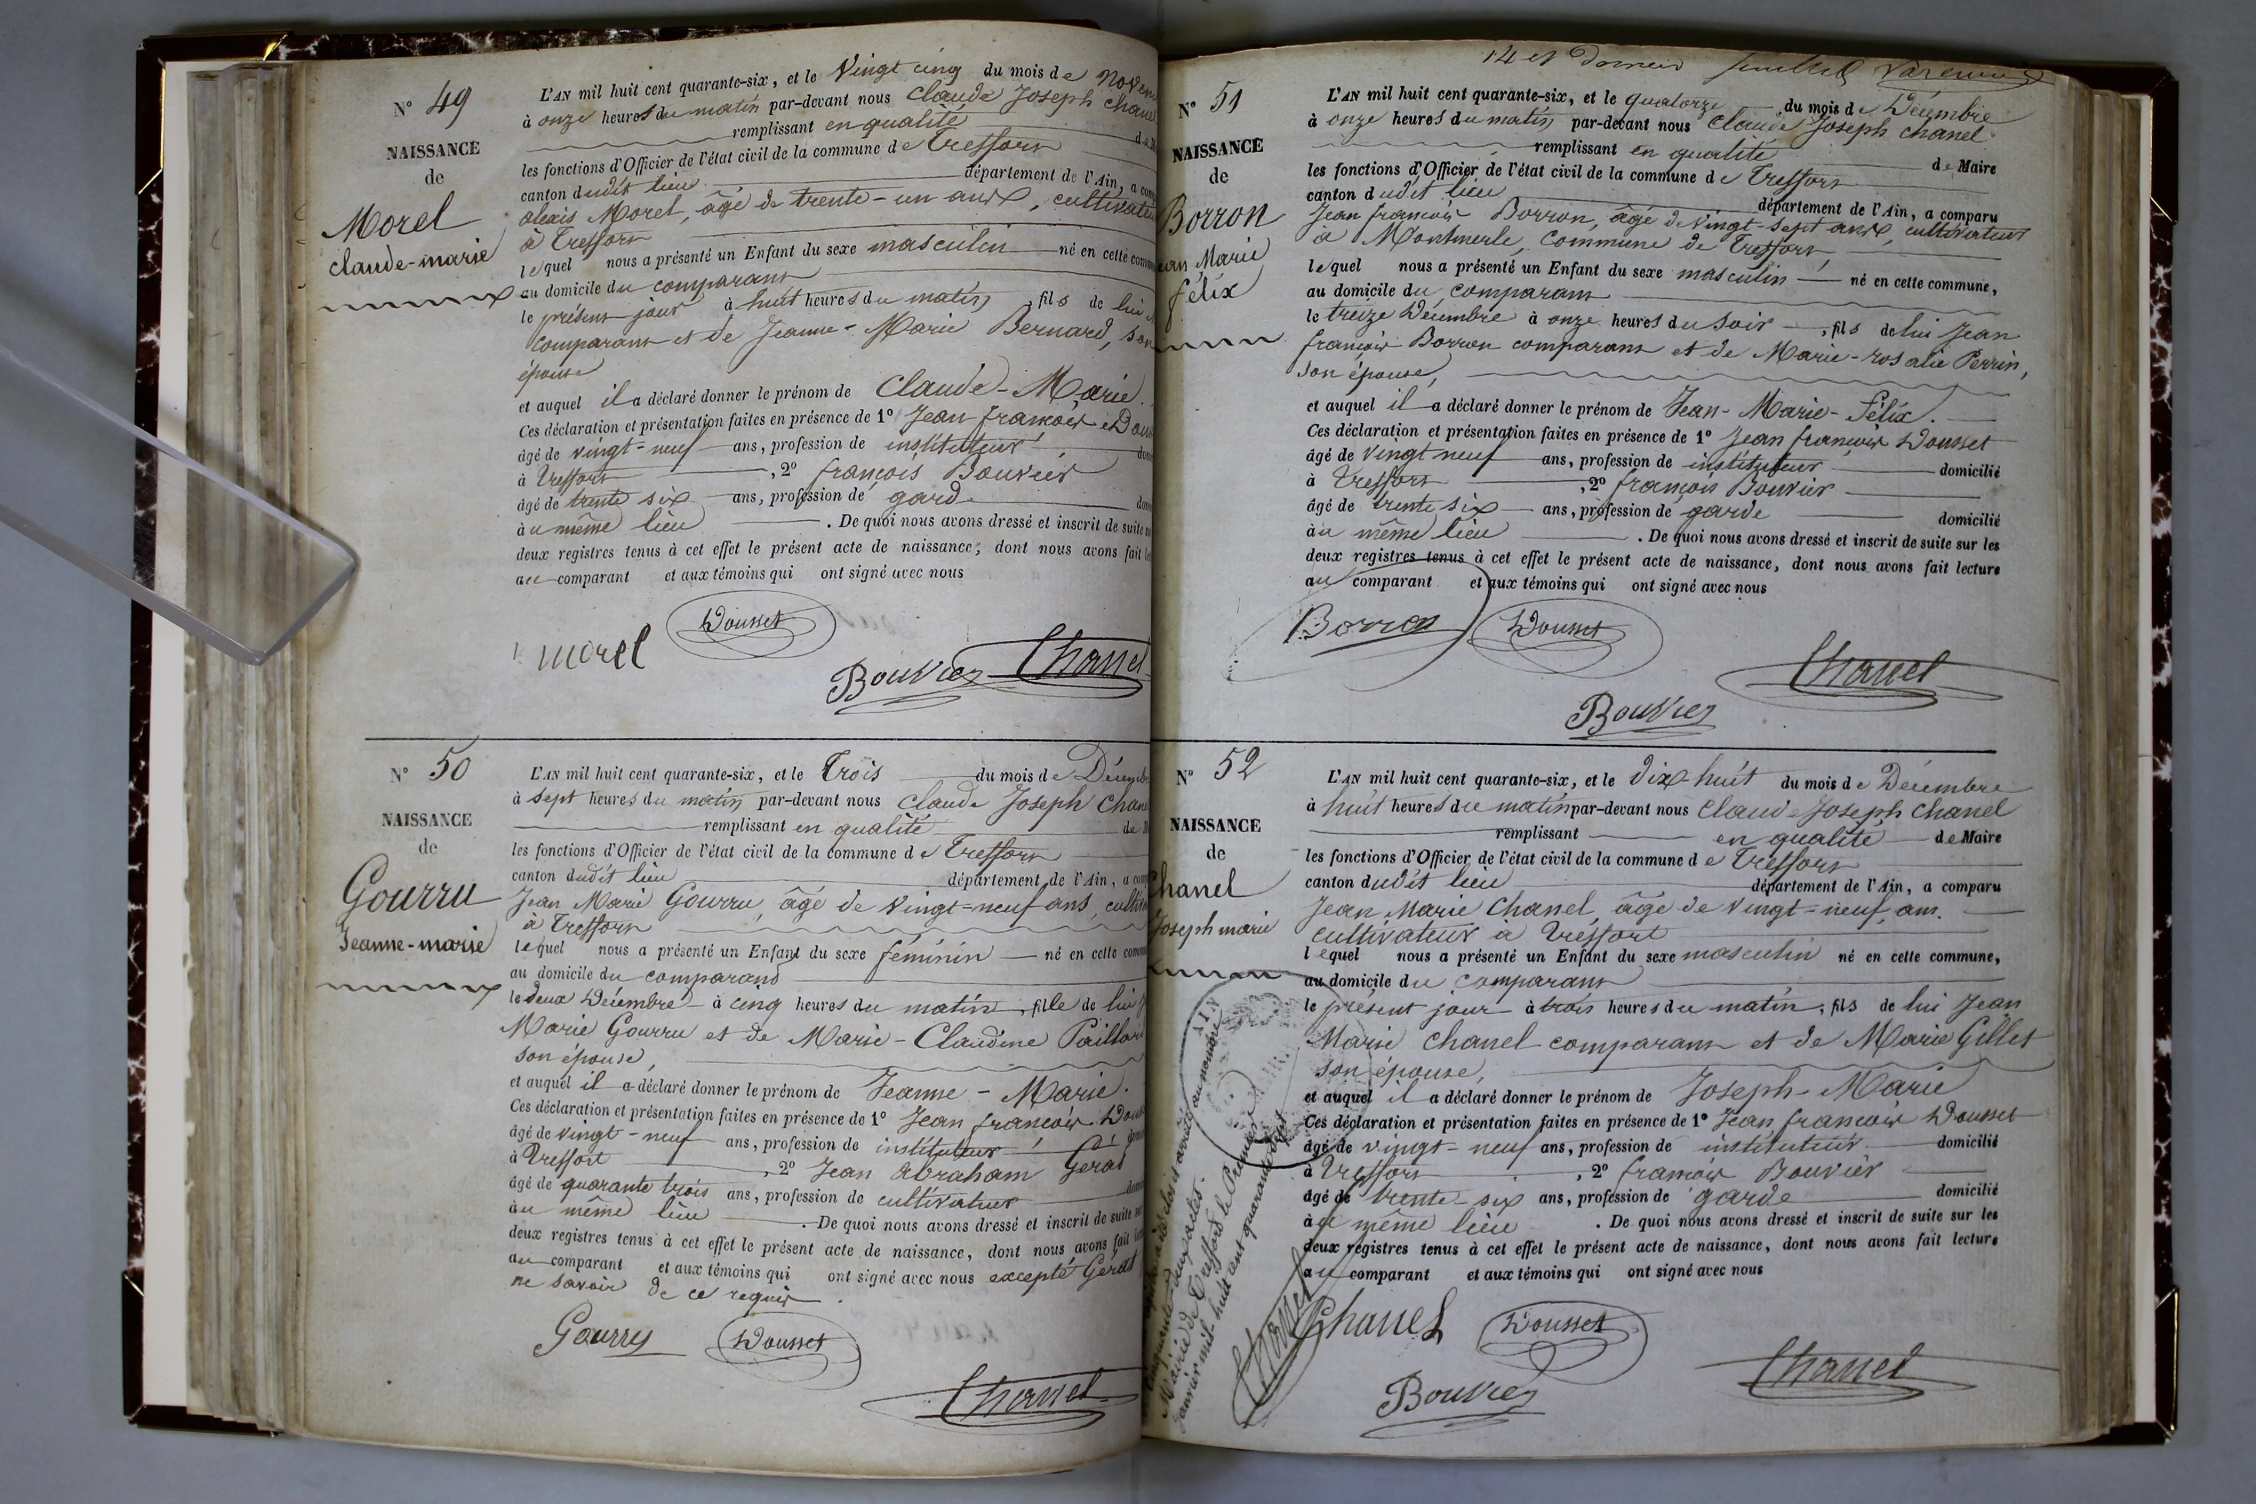 N° 49
NAISSANCE
de
Morel
claude-marie
L'AN mil huit cent quarante-six, et le Vingt cinq du mois de Novem
à onze heures du matin par-devant nous Claude Joseph Chanel
remplissant en qualité
les fonctions d'Officier de l'état civil de la commune de Treffort
canton dudit lieu département de l'Ain, a com
alexis Morel, âgé de trente-un ans, cultivateur
à Treffort
lequel nous a présenté un Enfant du sexe masculin né en cette commune
au domicile du comparant
le présent jour à huit heures du matin, fils de lui
comparant et de Jeanne-Marie Bernard, son
épouse
et auquel il a déclaré donner le prénom de Claude-Marie.
Ces déclaration et présentation faites en présence de 1° Jean françois Dous
âgé de vingt-neuf ans, profession de instituteur dom
à Treffort, 2° françois Bouvier
âgé de trente six ans, profession de garde dom
au même lieu. De quoi nous avons dressé et inscrit de suite
deux registres tenus à cet effet le présent acte de naissance, dont nous avons fait le
au comparant et aux témoins qui ont signé avec nous
morel Dousset
Bouvier Chanel
N° 50
NAISSANCE
de
Gourru
Jeanne-marie
L'AN mil huit cent quarante-six, et le Trois du mois de Décembre
à sept heures du matin par-devant nous Claude Joseph Chane
remplissant en qualité de M
les fonctions d'Officier de l'état civil de la commune de Treffort
canton dudit lieu département de l'Ain, a com
Jean Marie Gourru, âgé de vingt-neuf ans, cultiva
à Treffort
lequel nous a présenté un Enfant du sexe féminin né en cette commu
au domicile du comparant
le deux Décembre à cinq heures du matin, fille de lui
Marie Gourru et de Marie-Claudine Paillard
son épouse,
et auquel il a déclaré donner le prénom de Jeanne-Marie.
Ces déclaration et présentation faites en présence de 1° Jean françois Dous
âgé de vingt-neuf ans, profession de instituteur
à Treffort, 2° Jean Abraham Gérat
âgé de quarante trois ans, profession de cultivateur
au même lieu. De quoi nous avons dressé et inscrit de suite
deux registres tenus à cet effet le présent acte de naissance, dont nous avons fait
au comparant et aux témoins qui ont signé avec nous excepté Gérat
ne savoir de ce requis.
Gourru Dousset
Chanel
14 et Dernier
N° 51
NAISSANCE
de
Borron
Jean Marie
félix
L'AN mil huit cent quarante-six, et le quatorze du mois de Décembre
à onze heures du matin par-devant nous Claude Joseph Chanel
remplissant en qualité de Maire
les fonctions d'Officier de l'état civil de la commune de Treffort
canton dudit lieu département de l'Ain, a comparu
Jean françois Borron, âgé de vingt-sept ans, cultivateur
à Montmerle, Commune de Treffort,
lequel nous a présenté un Enfant du sexe masculin né en cette commune,
au domicile du comparant
le treize Décembre à onze heures du soir, fils de lui Jean
françois Borron comparant et de Marie-rosalie Perrin,
son épouse,
et auquel il a déclaré donner le prénom de Jean-Marie-Félix.
Ces déclaration et présentation faites en présence de 1° Jean françois Dousset
âgé de vingt neuf ans, profession de instituteur domicilié
à Treffort, 2° françois Bouvier
âgé de trente six ans, profession de garde domicilié
au même lieu. De quoi nous avons dressé et inscrit de suite sur les
deux registres tenus à cet effet le présent acte de naissance, dont nous avons fait lecture
au comparant et aux témoins qui ont signé avec nous
Borron Dousset
Chanel
Bouvier
N° 52
NAISSANCE
de
Chanel
Joseph marie
L'AN mil huit cent quarante-six, et le Dix-huit du mois de Décembre
à huit heures du matin par-devant nous Claude Joseph Chanel
remplissant en qualité de Maire
les fonctions d'Officier de l'état civil de la commune de Treffort
canton dudit lieu département de l'Ain, a comparu
Jean Marie Chanel, âgé de vingt-neuf ans.
cultivateur à Treffort
lequel nous a présenté un Enfant du sexe masculin né en cette commune,
au domicile du comparant
le présent jour à trois heures du matin, fils de lui Jean
Marie Chanel comparant et de Marie Gillet
son épouse,
et auquel il a déclaré donner le prénom de Joseph-Marie
Ces déclaration et présentation faites en présence de 1° Jean françois Dousset
âgé de vingt-neuf ans, profession de instituteur domicilié
à Treffort, 2° françois Bouvier
âgé de trente-six ans, profession de garde domicilié
au même lieu. De quoi nous avons dressé et inscrit de suite sur les
deux registres tenus à cet effet le présent acte de naissance, dont nous avons fait lecture
au comparant et aux témoins qui ont signé avec nous
Chanel Dousset
Bouvier Chanel
clos et arrêté au nombre
cinquante-deux actes.
Mairie de Treffort le Premier
Janvier mil-huit cent quarante-sept
Chanel
AIN